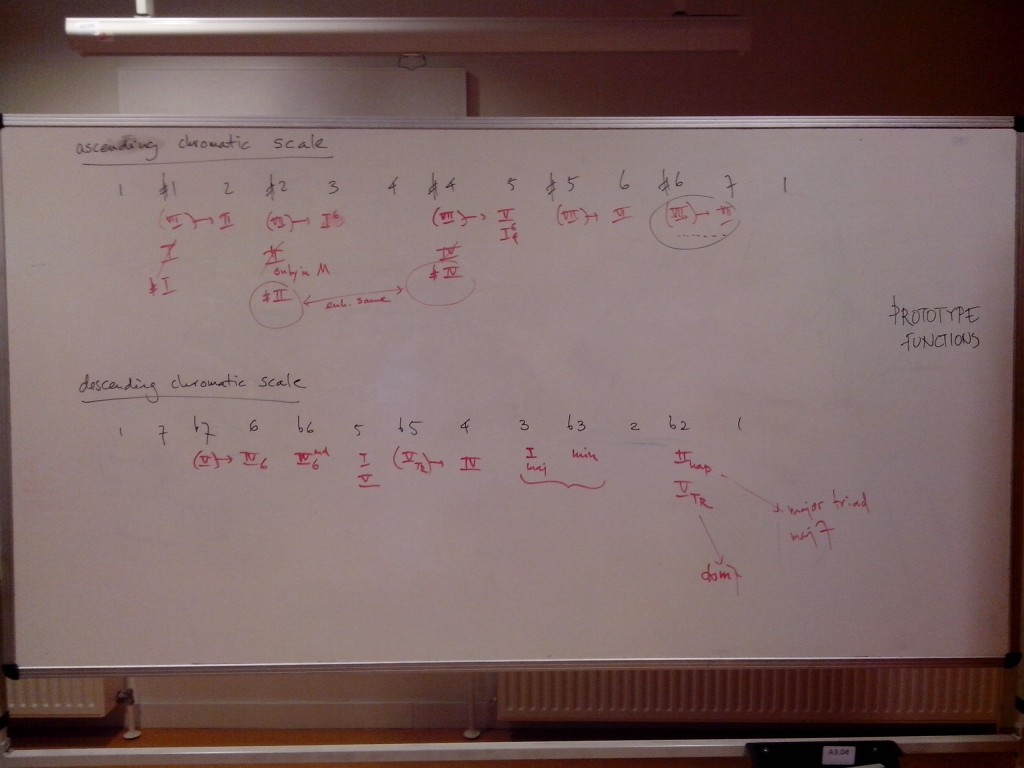 ascending chromatic scale
1 #1 2 #2 3 4 #4 5 #5 6 #6 7 1
(VII)→ II (VII)→ I6 (VII)→ V (VII)→ VI (VII)→ VII
I II I64 IV
only in M
#I #II enh. same #IV
PROTOTYPE
FUNCTIONS
descending chromatic scale
1 7 b7 6 b6 5 b5 4 3 b3 2 b2 1
(V)→ IV6 IV6 I (VTR)→ IV I maj min IInap
V VTR
major triad
maj 7
dom7
A3.04